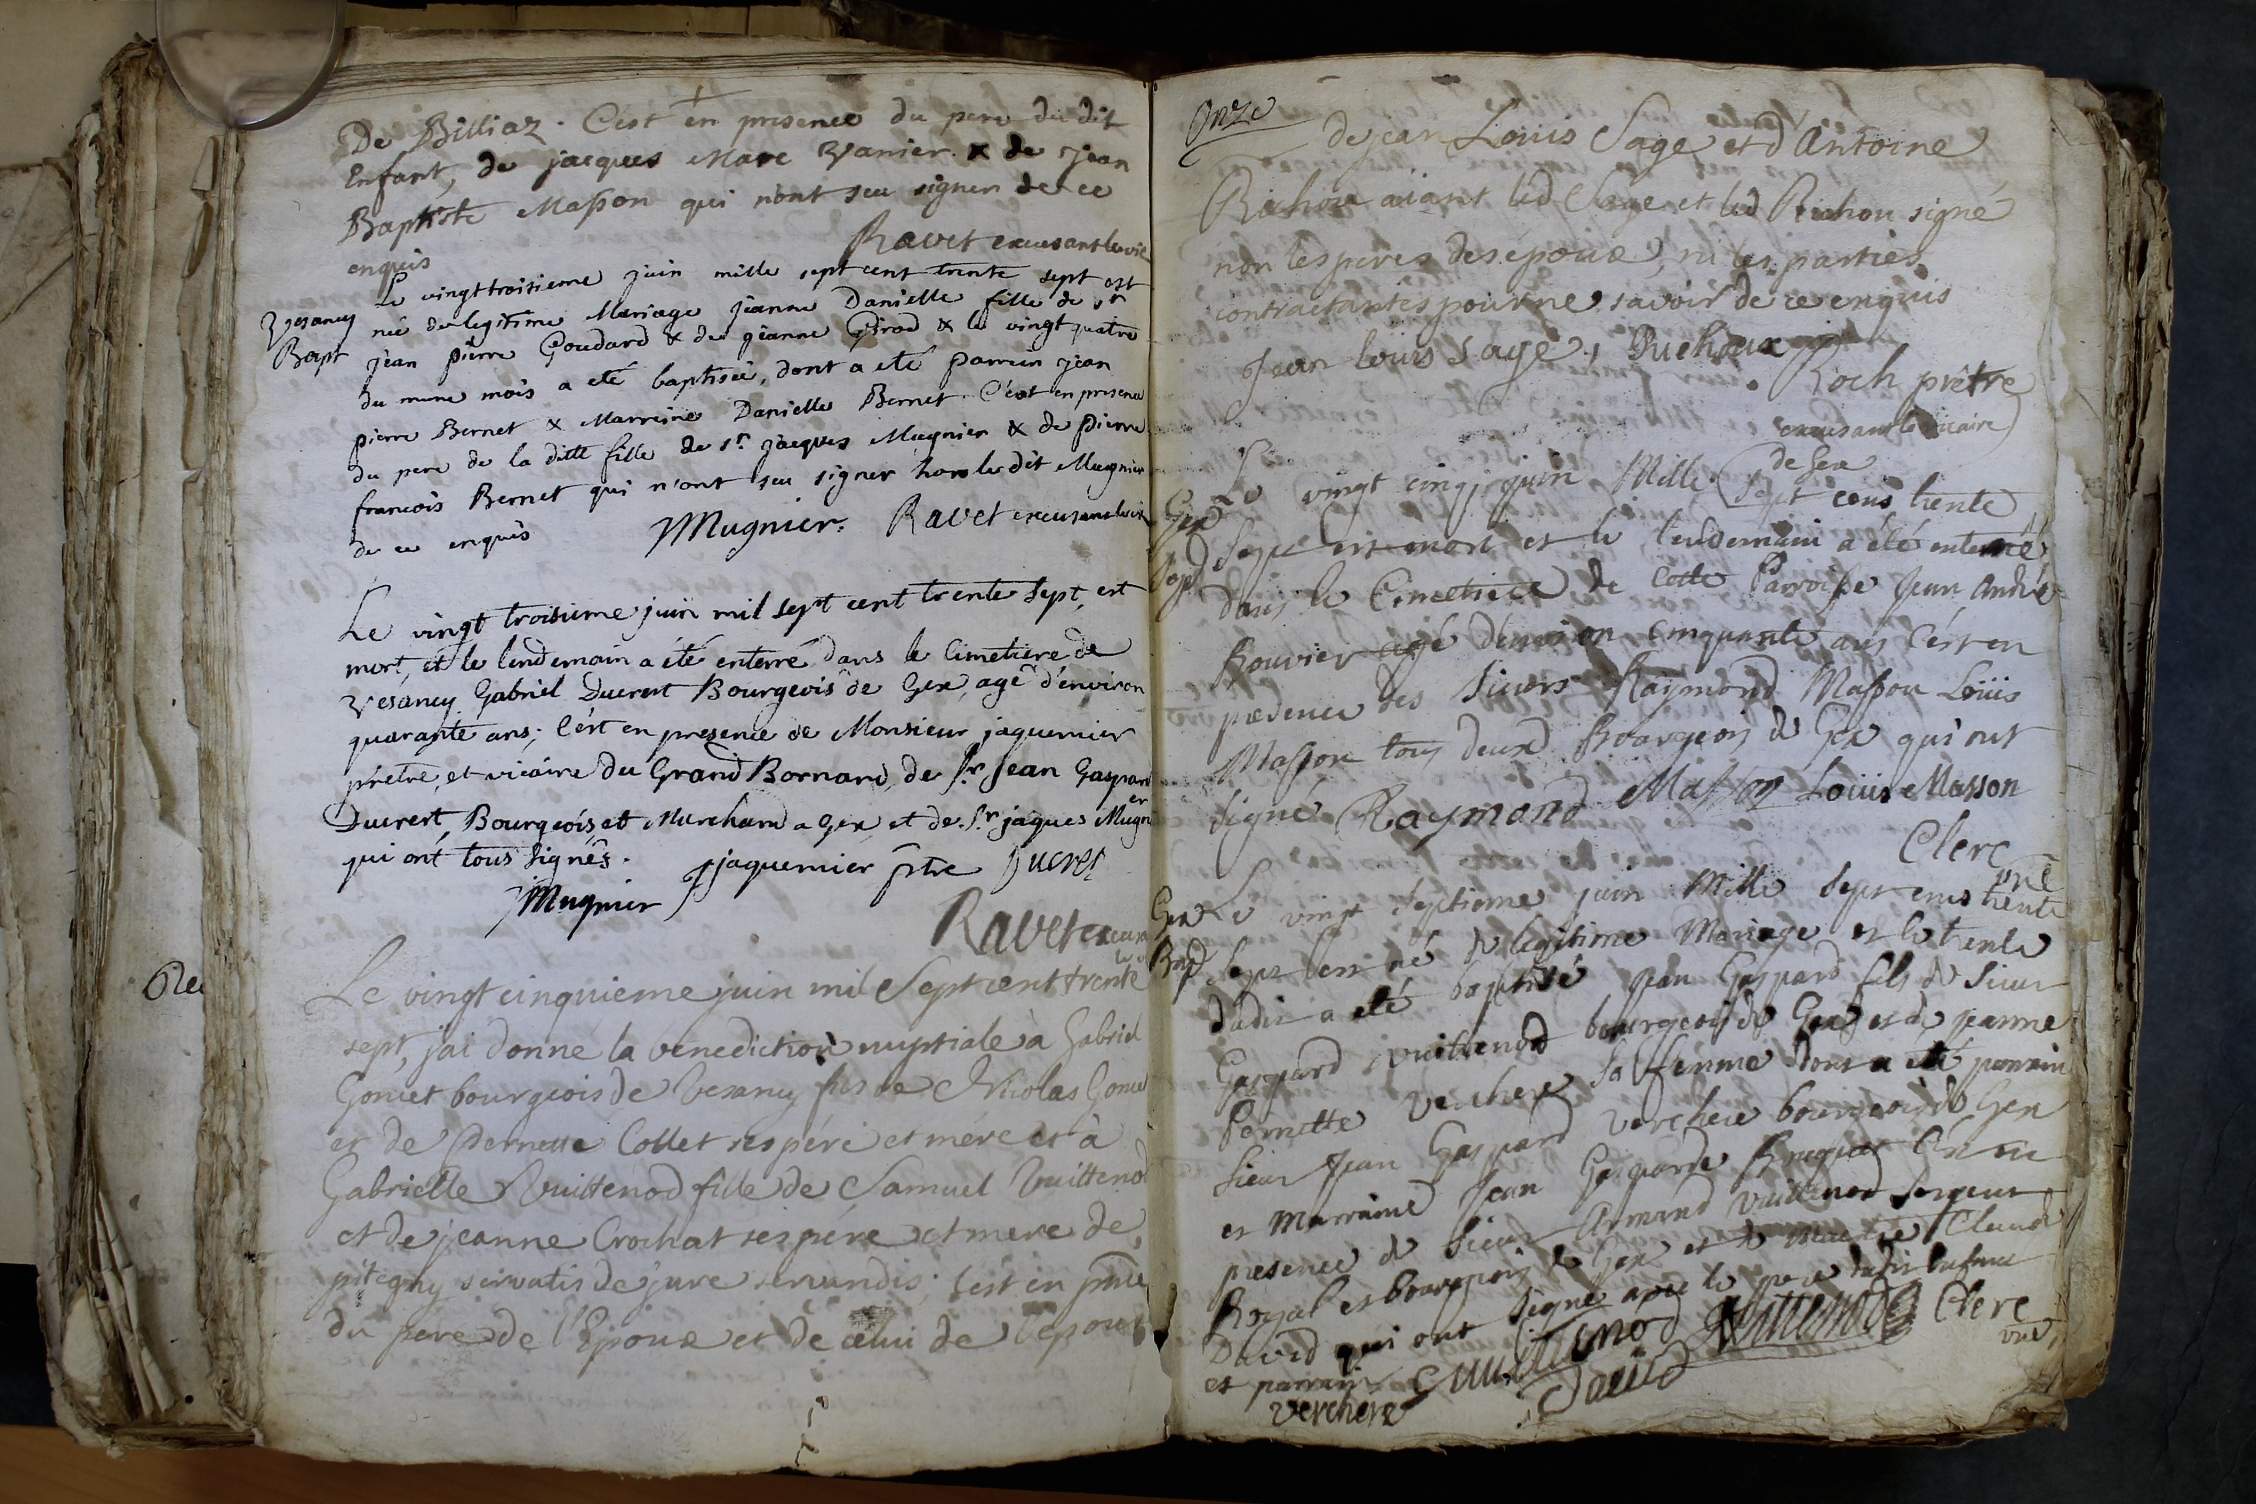 De Billiaz. C'est en presence du pere du dit
Enfant, de jacques Marc Vanier x de jean
Baptiste Masson qui n'ont sçu signer de ce
enquis
Ravet excusant le vic
Vesancy
Bapt
Le vingttroisieme juin mille sept cent trente sept est
née de legitime Mariage Jeanne Danielle fille de sr
jean pierre Goudard & de jeanne Girod & le vingt quatre
du meme mois a eté baptisée, dont a eté parrein jean
pierre Bernet & Marreine Danielle Bernet. C'est en presence
du pere de la ditte fille de sr. jacques Mugnier & de pierre
francois Bernet qui n'ont sçu signer hors le dit Mugnier
de ce enquis
JMugnier. Ravet excusant le vic
Le vingt troisieme juin mil sept cent trente sept, est
mort, et le lendemain a été enterré dans le Cimetiere de
Vesancy Gabriel Ducrest Bourgeois de Gex, agé d'environ
quarante ans; C'est en presence de Monsieur jaquemier
prêtre, et vicaire du Grand Bornand, de Sr Jean Gaspard
Ducrest, Bourgeois et Marchand a Gex, et de Sr jaques Mugnier
qui ont tous signés.
jaquemier ptre Ducrest
JMugnier
Ravet excusant
Le vingt cinquieme juin mil Sept cent trente
sept, j'ai donné la benediction nuptiale à Gabriel
Gonet bourgeois de Vesancy fils de Nicolas Gonet
et de Pernette Collet ses père et mère et à
Gabrielle Vuittenod fille de Samuel Vuittenod
et de jeanne Crochat ses père et mere de
pitegny servatis de jure servandis; C'est en pnce
du pere de l'Epoux et de celui de l'epouse
Onze
de jean Louis Sage et d'Antoine
Richou aiant led Sage et led Richou signé
non les peres des epoux, ni les parties
contractantes pour ne savoir de ce enquis
Jean louis Sage,
Roch prêtre
excusant le vicaire
de Gex
Gex
Sep
Le vingt cinq juin Mille Sept cens trente
Sept est mort et le lendemain a été enterré
dans le Cimetiere de cette Parroisse Jean André
Bouvier agé denviron cinquante ans C'est en
presence des Sieurs Raymond Masson Loüis
Masson tous deux Bourgeois de Gex qui ont
signé Raymond Masson Loüis Masson
Clerc
vre
Gex
Bap
Le vingt septieme juin Mille Sept cens trente
Sept est né de legitime Mariage et le trente
dudit a eté baptisé Jean Gaspard fils de Sieur
Gaspard Vuittenod bourgeois de Gex et de jeanne
Pernette Verchere sa femme dont a été parrain
Sieur Jean Gaspard Verchere bourgeois de Gex
et Marraine Jean Gasparde C'est en
presence de Sieur Armand Vuittenod Sergent
Royal et bourgeois de Gex et de Maitre Claude
David qui ont signé avec le pere dudit Enfant
et parrain Vuittenod Vuittenod Clerc
vre
Verchere David